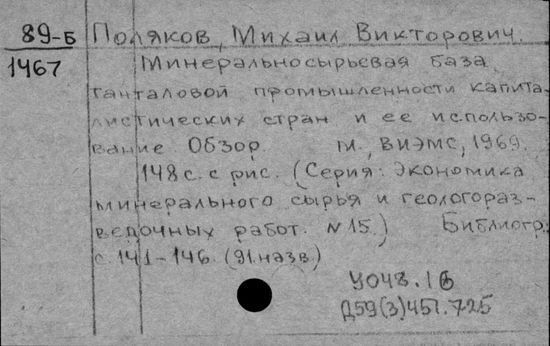 89-Б Поляков, Михаил Викторович.
1467 Минеральносырьевая база
танталовой промышленности капита-
листических стран и ее использо-
вание Обзор. М., ВИЭМС, 1969.
148 с. с рис. (Серия: Экономика
минерального сырья и геологораз-
ведочных работ. N 15.) Библиогр.
с. 141-146. (91 назв.)
У048.1
Д59(3)451.725